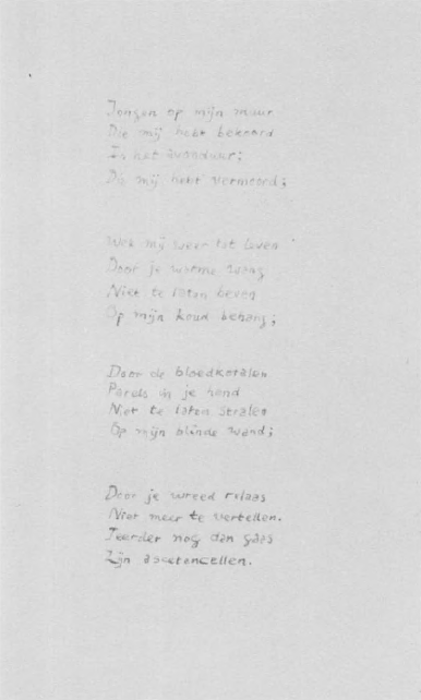 Jongen op mijn muur
Die mij hebt bekoord
In het avonduur;
Die mij hebt vermoord;
Wek mij weer tot leven
Door je warme wang
Niet te laten beven
Op mijn koud behang;
Door de bloedkoralen
Parels in je hand
Niet te laten stralen
Op mijn blinde wand;
Door je wreed relaas
Niet meer te vertellen.
Teerder nog dan gaas
Zijn ascetencellen.